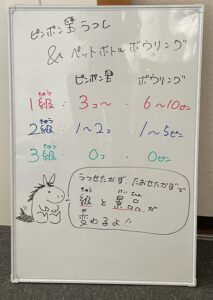 ピンポン玉うつし
& ペットボトルボウリング
ピンポン玉 ボウリング
1級 : 3コ〜 ・ 6〜10ピン
2級 : 1〜2コ ・ 1〜5ピン
3級 : 0コ ・ 0ピン
うつせたかず、たおせたかずで
級と景品が
変わるよ!!